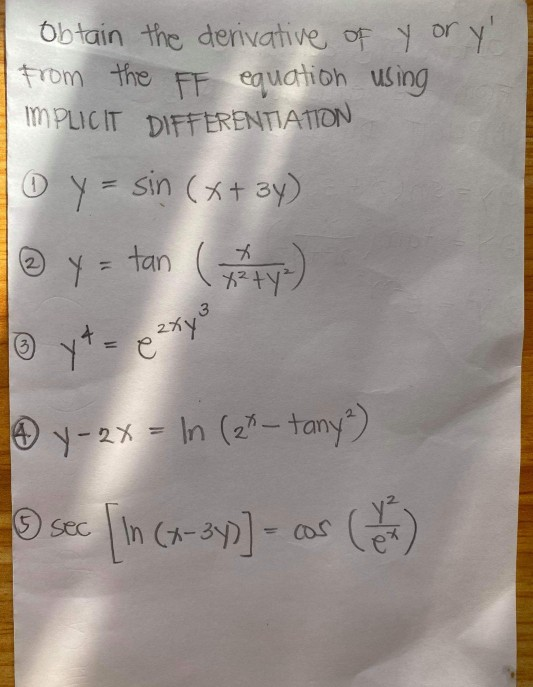 Obtain the derivative of y or y'
from the FF equation using
IMPLICIT DIFFERENTIATION
① y = sin (x + 3y)
② y = tan (x/(x²+y²))
③ y⁴ = e^(2xy³)
④ y - 2x = ln (2ˣ - tany²)
⑤ sec [ln (x-3y)] = cos (y²/eˣ)